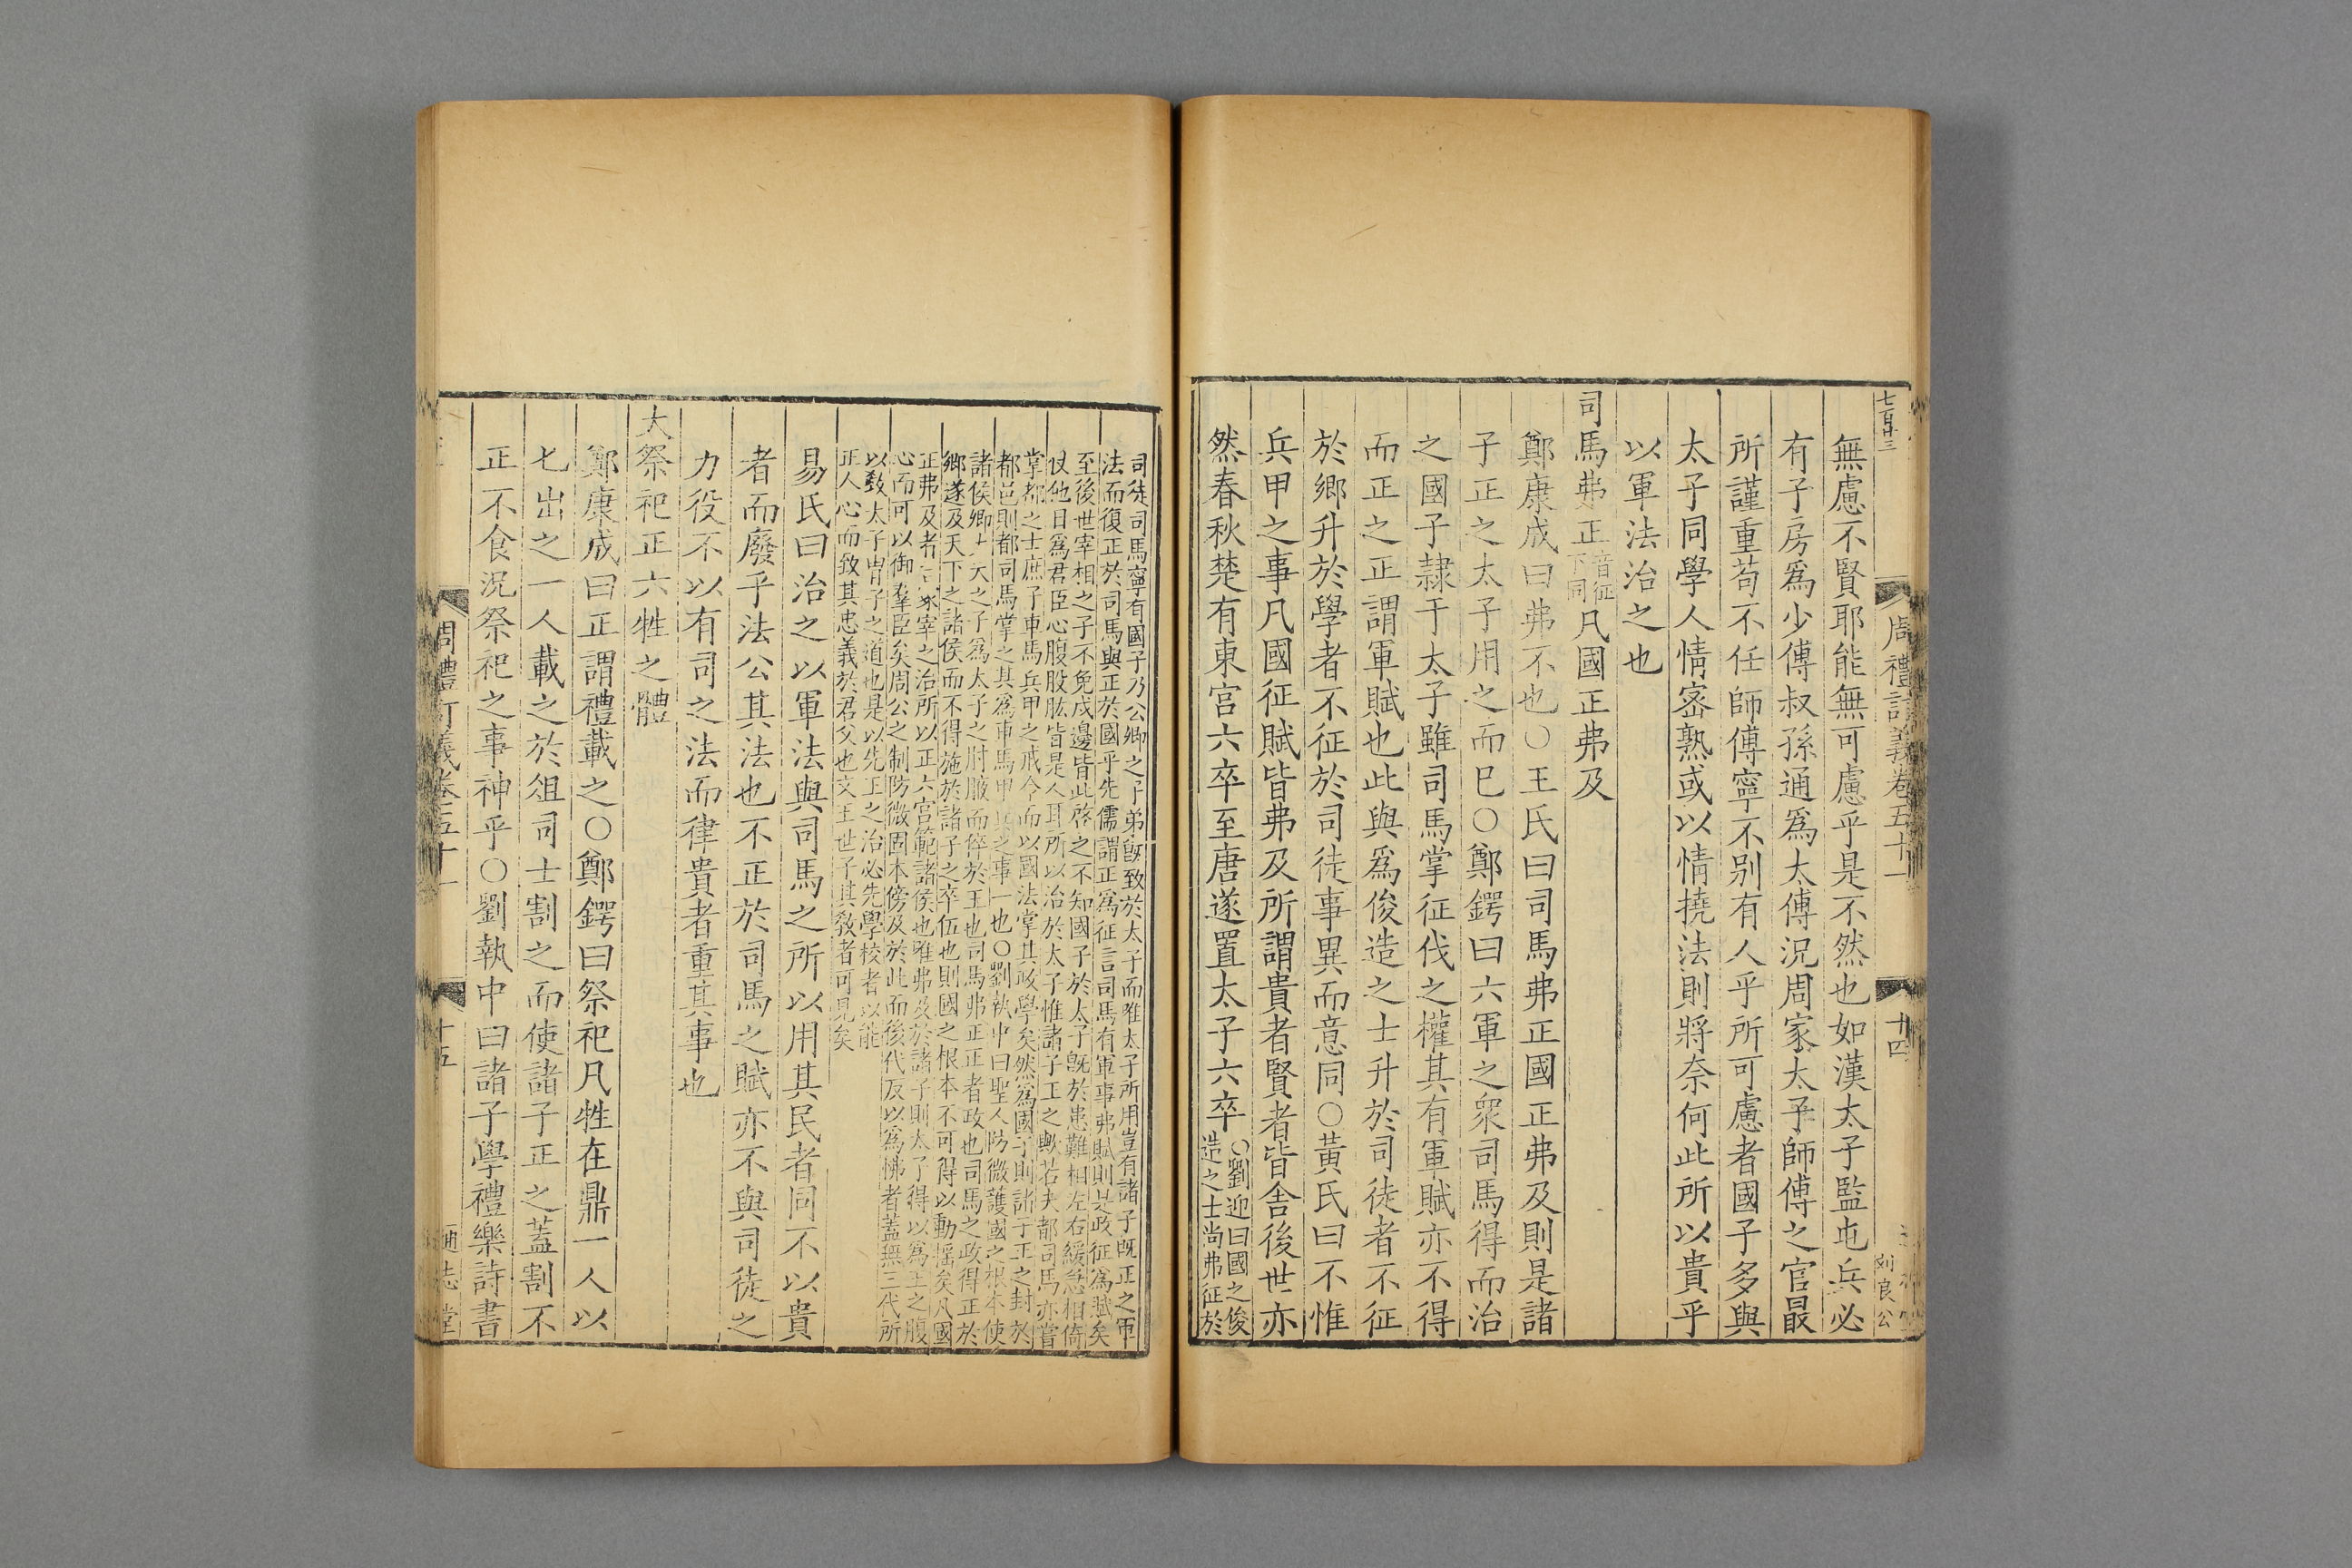 七百廿三
周禮訂義卷五十一
十四
刘良公
無慮不賢耶能無可慮乎是不然也如漢太子監屯兵必
有子房爲少傅叔孫通爲太傅況周家太子師傅之官最
所謹重苟不任師傅寧不别有人乎所可慮者國子多與
太子同學人情宻熟或以情撓法則將奈何此所以貴乎
以軍法治之也
司馬弗正音征下同凡國正弗及
鄭康成曰弗不也○王氏曰司馬弗正國正弗及則是諸
子正之太子用之而已○鄭鍔曰六軍之衆司馬得而治
之國子隷于太子雖司馬掌征伐之權其有軍賦亦不得
而正之正謂軍賦也此與爲俊造之士升於司徒者不征
於鄉升於學者不征於司徒事異而意同○黃氏曰不惟
兵甲之事凡國征賦皆弗及所謂貴者賢者皆舍後世亦
然春秋楚有東宮六卒至唐遂置太子六卒○劉迎曰國之俊
造之士尚弗征於
司徒司馬寧有國子乃公卿之子弟旣致於太子而唯太子所用豈有諸子旣正之軍
法而復正於司馬與正於國乎先儒謂正爲征言司馬有軍事弗賦則是政征爲賦矣
至後世宰相之子不免戍邊皆此啓之不知國子於太子旣於患難相左右緩急相倚
仗他日爲君臣心腹股肱皆是人耳所以治於太子惟諸子正之歟若夫都司馬亦嘗
掌都之士庶子車馬兵甲之戒令而以國法掌其政學矣然爲國子則諸子正之封於
都邑則都司馬掌之其爲車馬甲兵之事一也○劉執中曰聖人防微護國之根本使
諸侯卿大夫之子爲太子之肘腋而倅於王也司馬弗正正者政也司馬之政得正於
鄉遂及天下之諸侯而不得施於諸子之卒伍也則國之根本不可得以動搖矣凡國
正弗及者言冢宰之治所以正六宫範諸侯也唯弗及於諸子則太子得以爲王之腹
心而可以御羣臣矣周公之制防微固本傍及於此而後代反以爲怫者蓋無三代所
以敎太子冑子之道也是以先王之治必先學校者以能
正人心而致其忠義於君父也文王世子其敎者可見矣
易氏曰治之以軍法與司馬之所以用其民者同不以貴
者而廢乎法公其法也不正於司馬之賦亦不與司徒之
力役不以有司之法而律貴者重其事也
大祭祀正六牲之體
鄭康成曰正謂禮載之○鄭鍔曰祭祀凡牲在鼎一人以
匕出之一人載之於俎司士割之而使諸子正之蓋割不
正不食況祭祀之事神乎○劉執中曰諸子學禮樂詩書
周禮訂義卷五十一
十五
通志堂